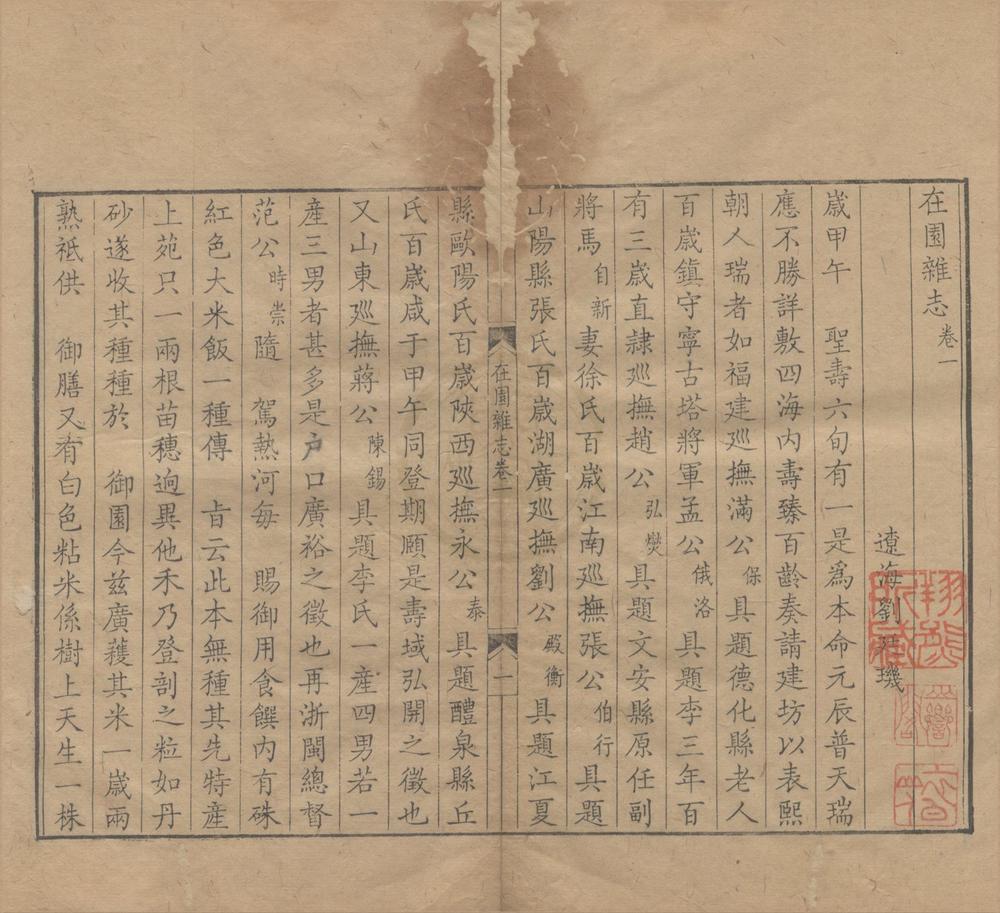 在園雜志卷一
遼海劉廷璣
歲甲午　聖壽六旬有一是爲本命元辰普天瑞
應不勝詳敷四海內壽臻百齡奏請建坊以表熙
朝人瑞者如福建廵撫滿公保具題德化縣老人
百歲鎮守寧古塔將軍孟公俄洛具題李三年百
有三歲直隸廵撫趙公弘燮具題文安縣原任副
將馬自新妻徐氏百歲江南廵撫張公伯行具題
山陽縣張氏百歲湖廣廵撫劉公殿衡具題江夏
在園雜志卷一
一
縣歐陽氏百歲陝西廵撫永公泰具題醴泉縣丘
氏百歲咸于甲午同登期頤是壽域弘開之徵也
又山東廵撫蔣公陳錫具題李氏一產四男若一
產三男者甚多是戶口廣裕之徵也再浙閩總督
范公時崇隨　駕熱河每　賜御用食饌內有硃
紅色大米飯一種傳　旨云此本無種其先特產
上苑只一兩根苗穗逈異他禾乃登剖之粒如丹
砂遂收其種種於　御園今兹廣穫其米一歲兩
熟祗供　御膳又有白色粘米係樹上天生一株